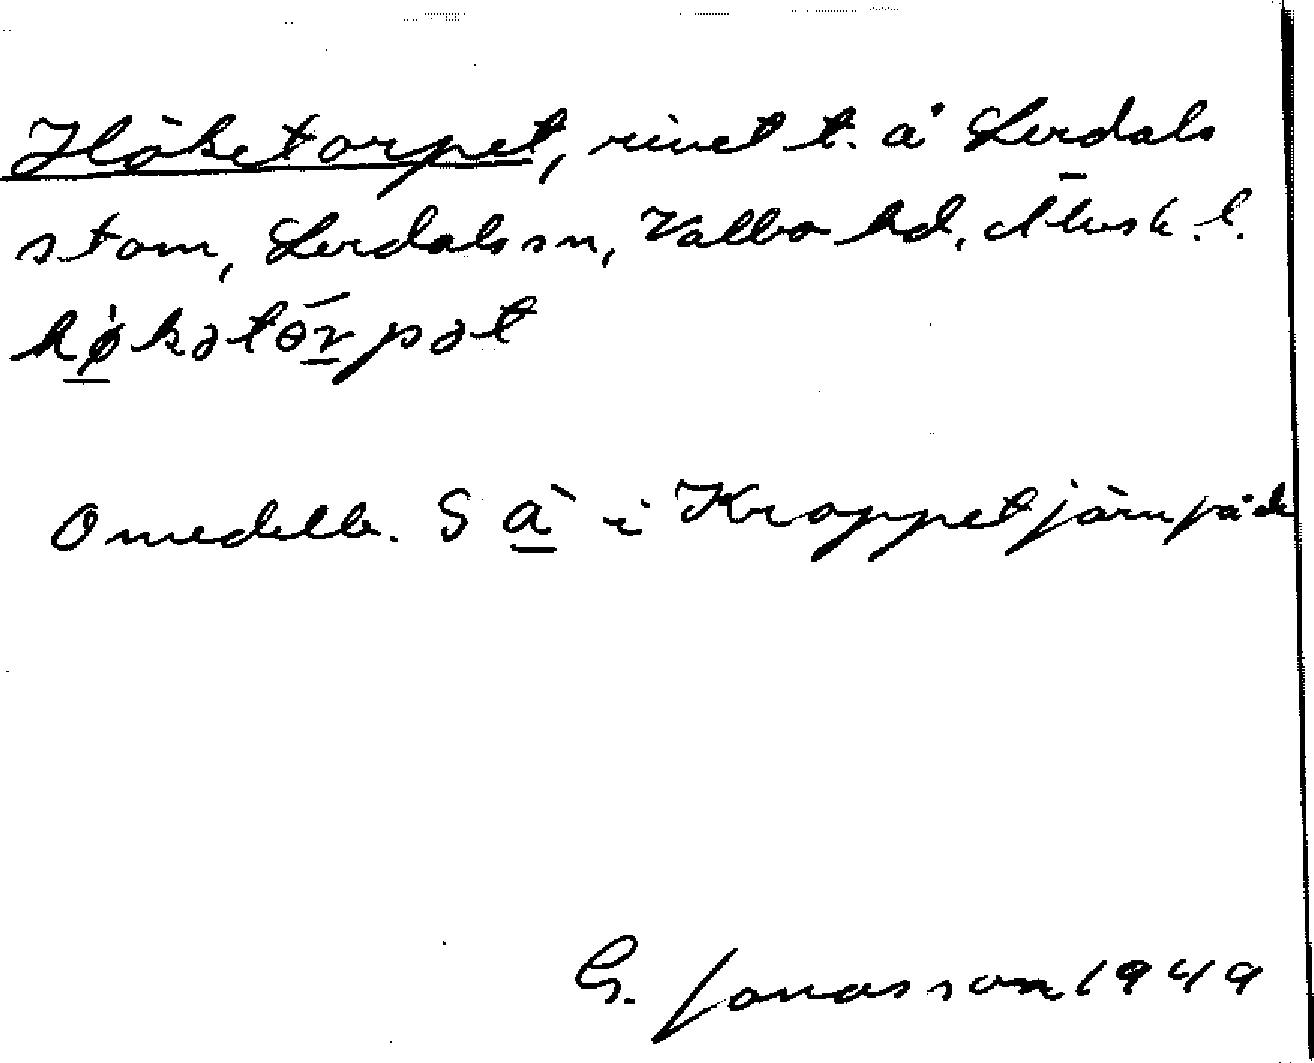 Höketorpet, rivet t. å Lerdals
stom, Lerdals sn, Valbo hd, Älvsb. l.
høkətörpət
Omedelb. S ä i Kroppetjärnpåde
G. Jonasson 1949